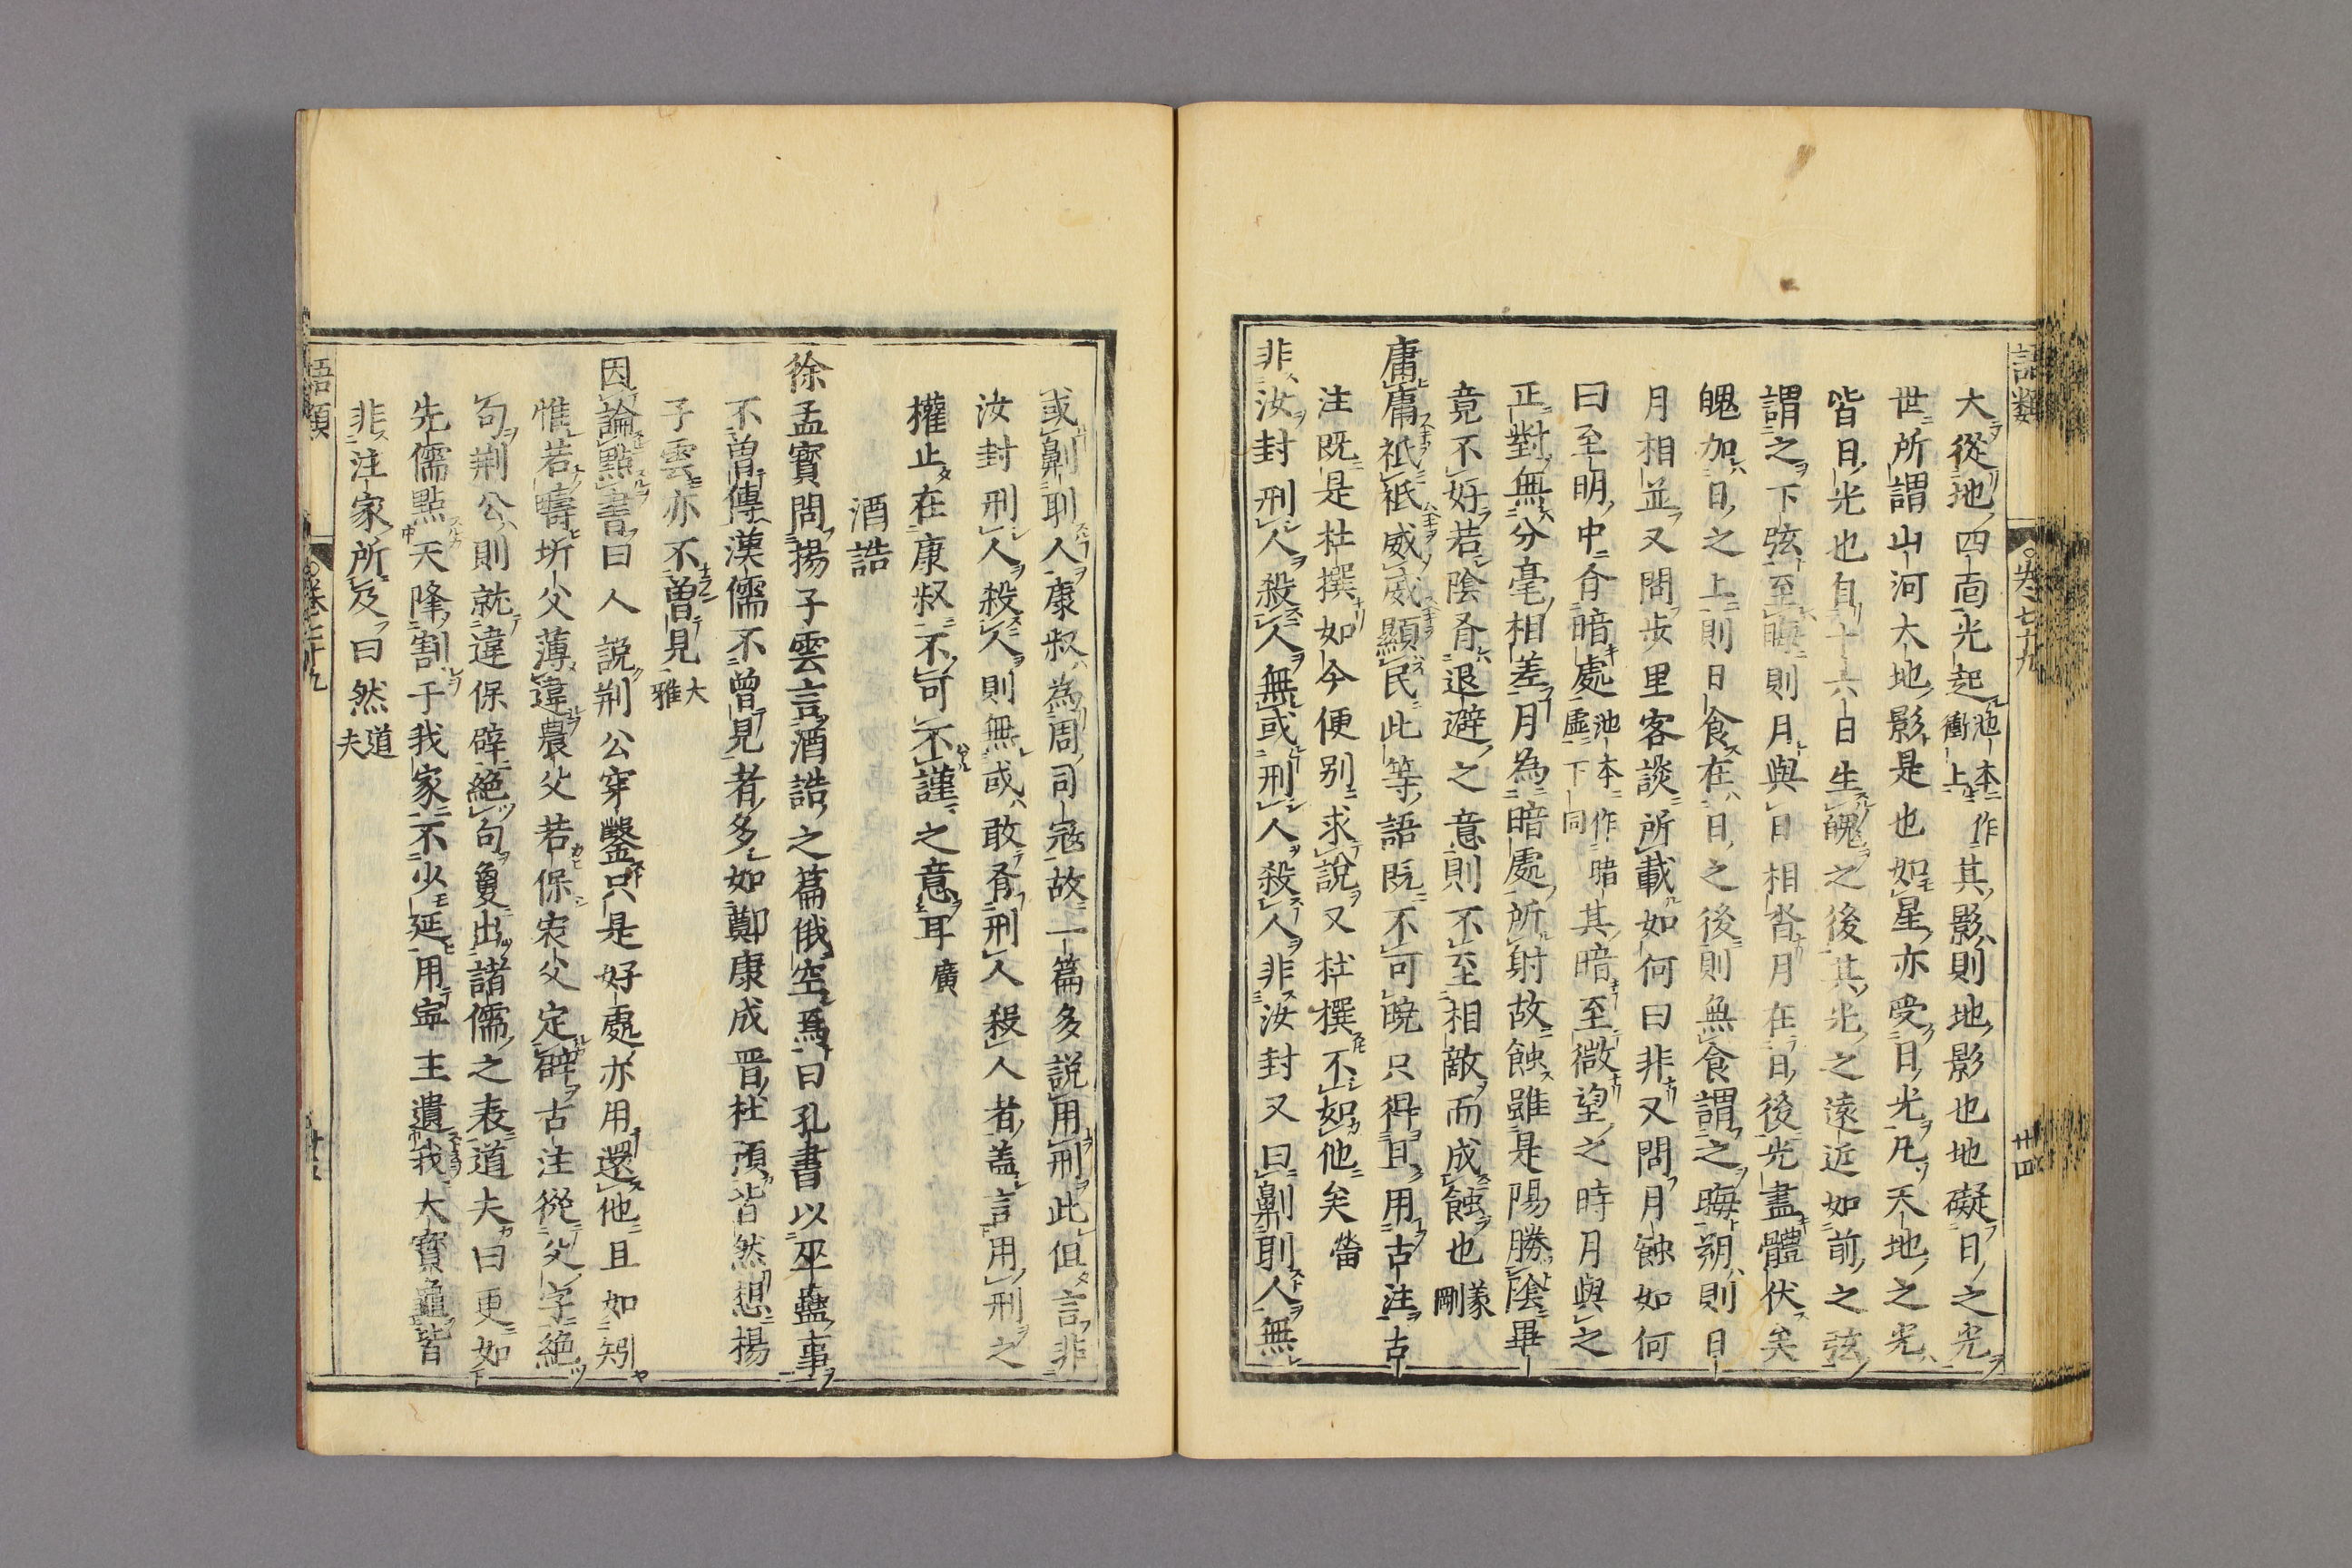 語類
卷七十九
卅四
大從地四面光起池本作衝上其影則地影也地礙日之光
世所謂山河大地影是也如星亦受日光凡天地之光
皆日光也自十六日生魄之後其光之遠近如前之弦
謂之下弦至晦則月與日相沓月在日後光盡體伏矣
魄加日之上則日食在日之後則無食謂之晦朔則日
月相並又問步里客談所載如何曰非又問月蝕如何
曰至明中有暗處池本作暗虛下同其暗至微望之時月與之
正對無分毫相差月為暗處所射故蝕雖是陽勝陰畢
竟不好若陰有退避之意則不至相敵而成蝕也義剛
庸庸祗祗威威顯民此等語既不可曉只得且用古注古
注既是杜撰如今便別求說又杜撰不如他矣㽦
非汝封刑人殺人無或刑人殺人非汝封又曰劓刵人無
或劓刵人康叔為周司寇故一篇多說用刑此但言非
汝封刑人殺人則無或敢有刑人殺人者蓋言用刑之
權止在康叔不可不謹之意耳廣
酒誥
徐孟寶問揚子雲言酒誥之篇俄空焉曰孔書以巫蠱事
不曾傳漢儒不曾見者多如鄭康成晉杜預皆然想揚
子雲亦不曾見大雅
因論點書曰人說荆公穿鑿只是好處亦用還他且如矧
惟若疇圻父薄違農父若保宏父定辟古注從父字絕
句荆公則就違保辟絕句夐出諸儒之表道夫曰更如
先儒點天降割于我家不少延用寧王遺我大寶龜皆
非注家所及曰然道夫
語類
卷七十九